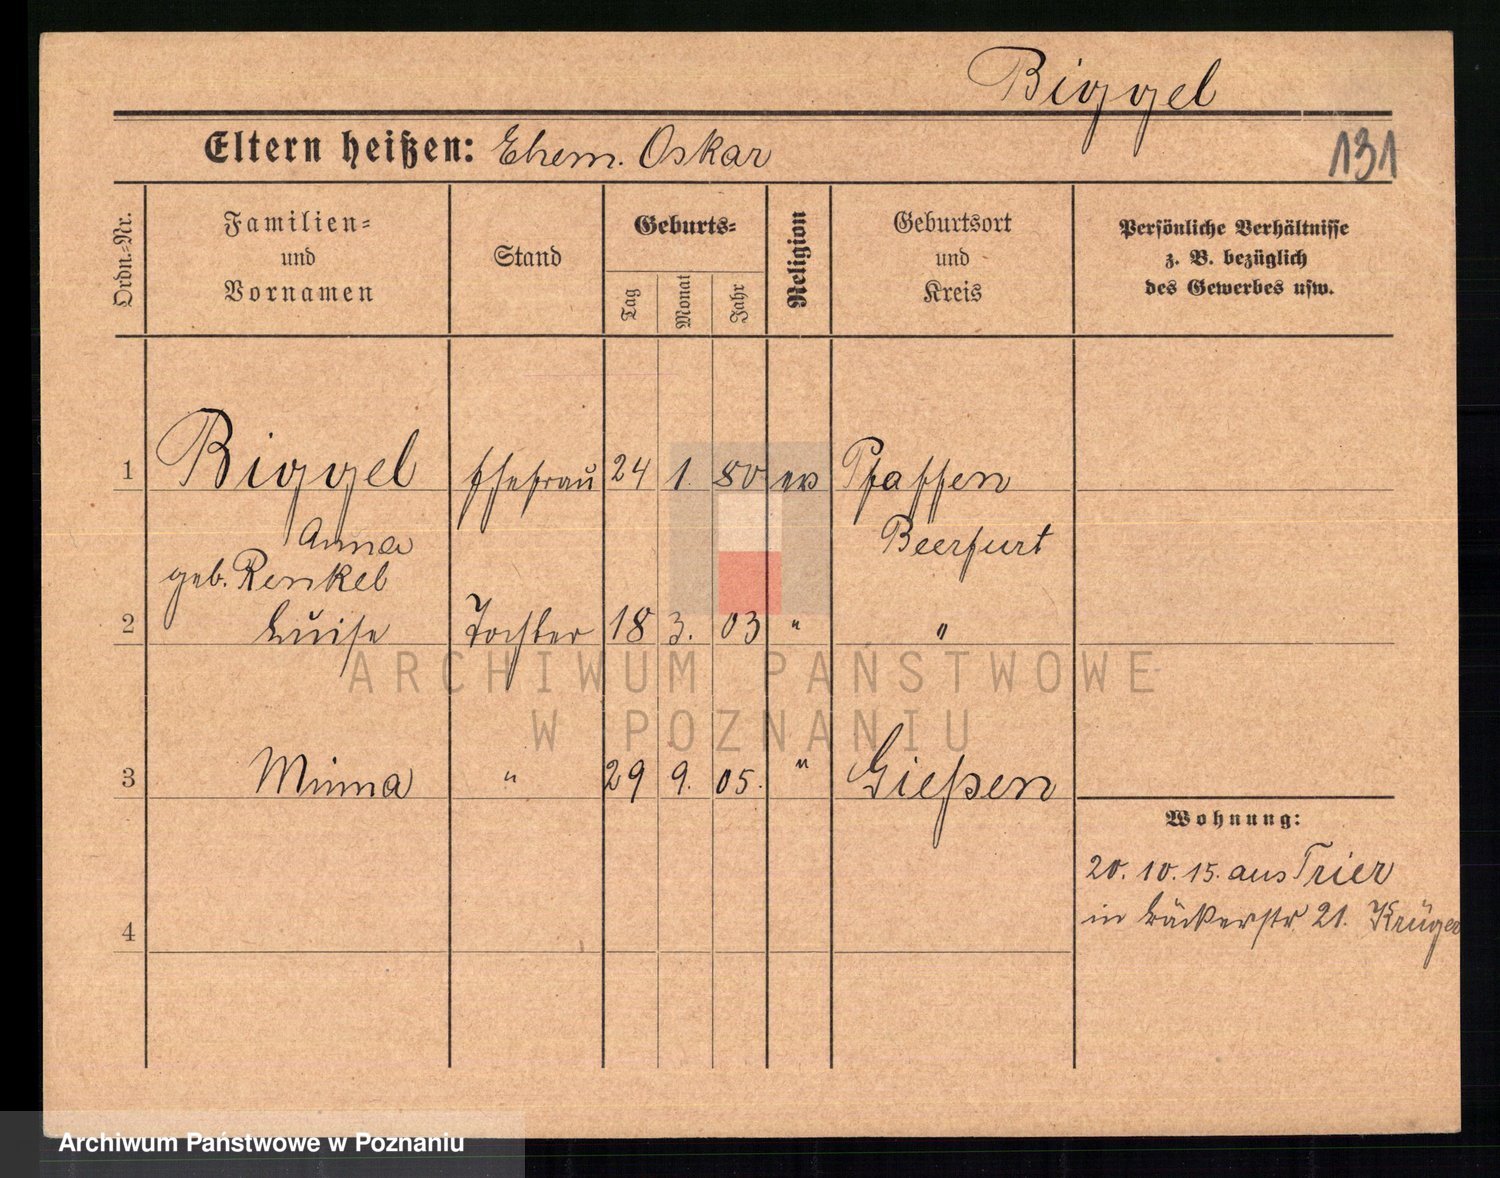 Biggel
Eltern heißen: Ehem. Oskar
131
Ordn.=Nr.
Familien=
und
Vornamen
Stand
Geburts=
Tag
Monat
Jahr
Religion
Geburtsort
und
Kreis
Persönliche Verhältnisse
z. B. bezüglich
des Gewerbes usw.
1 Biggel Ehefrau 24 1. 80 ev Pfaffen
Anna Beerfurt
geb. Renkel
2 Luise Tochter 18 3. 03 " "
ARCHIWUM PAŃSTWOWE
W POZNANIU
3 Minna " 29 9. 05. " Gießen
Wohnung:
20. 10. 15. aus Trier
in Bäckerstr 21. Krüger
4
Archiwum Państwowe w Poznaniu